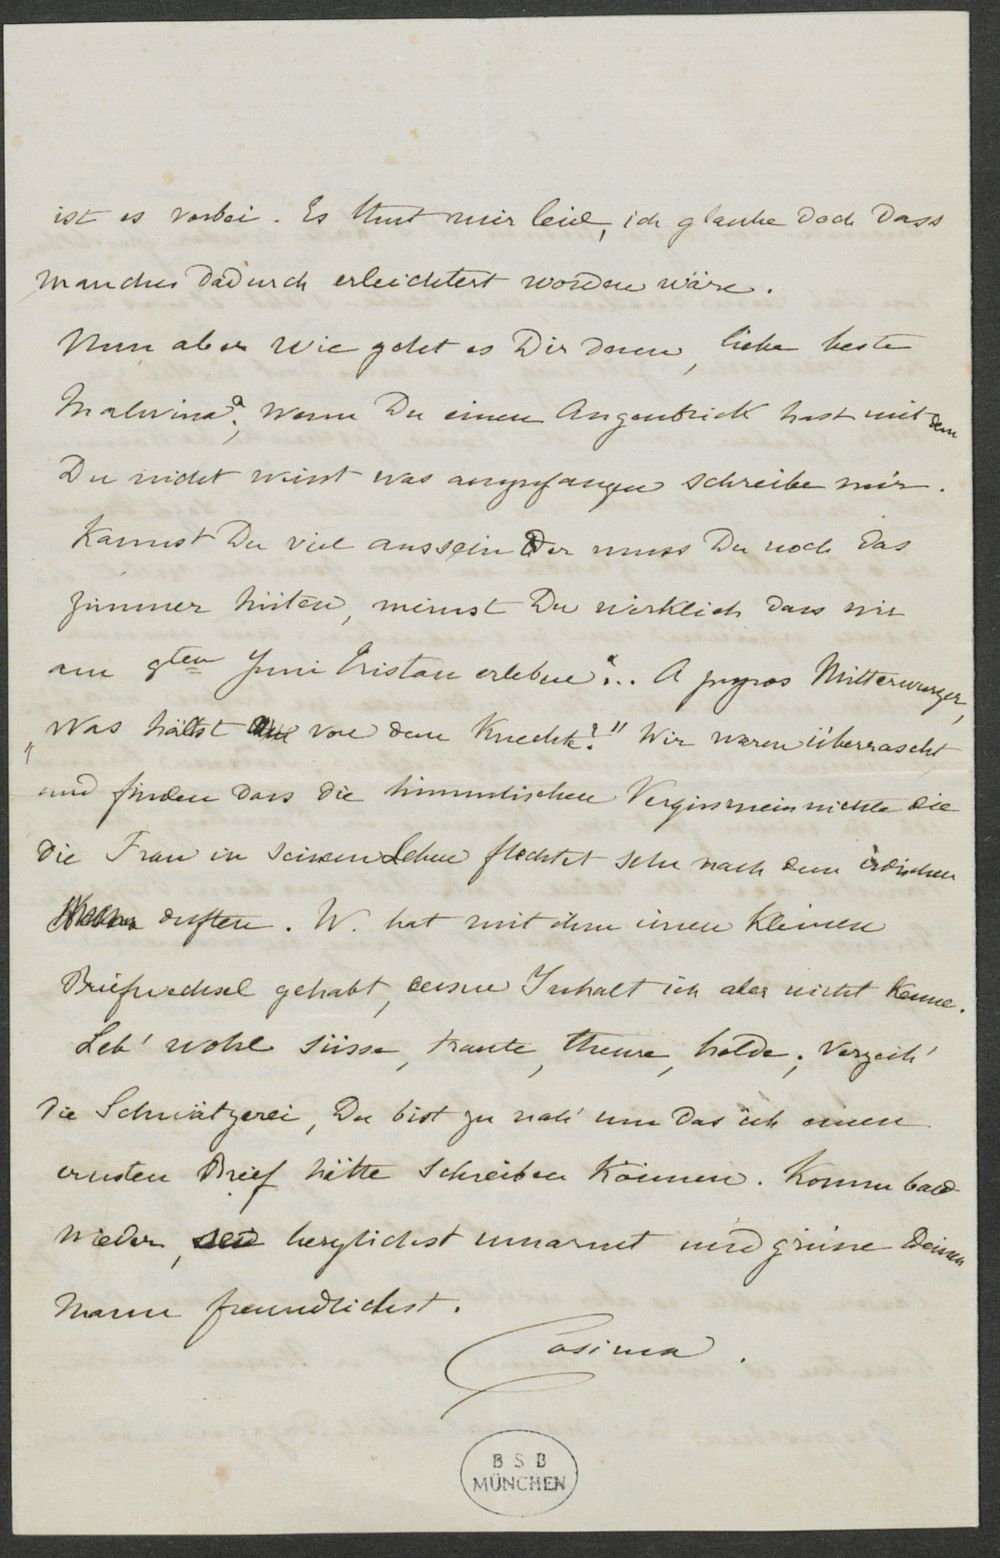 ist es vorbei. Es thut mir leid, ich glaube doch dass
manches dadurch erleichtert worden wäre.
Nun aber wie geht es Dir denn, liebe beste
Malwina?, wenn Du einen Augenblick hast mit dem
Du nicht weisst was anzufangen schreibe mir.
Kannst Du viel aussein oder muss Du noch das
Zimmer hüten, meinst Du wirklich dass wir
am 9ten Juni Tristan erleben?.. A propos Mitterwurzer,
„Was hältst Du von dem Knecht?" Wir waren überrascht
und finden dass die himmlischen Vergissmeinnichte die
die Frau in seinem Leben flechtet sehr nach dem irdischen
duften. W. hat mit ihm einen kleinen
Briefwechsel gehabt, dessen Inhalt ich aber nicht kenne.
Leb' wohl süsse, traute, theure, holde; verzeih'
die Schwätzerei, Du bist zu nah' um das ich einen
ernsten Brief hätte schreiben können. Komm bald
wieder, sei herzlichst umarmt und grüsse Deinen
Mann freundlichst.
Cosima.
BSB
MÜNCHEN